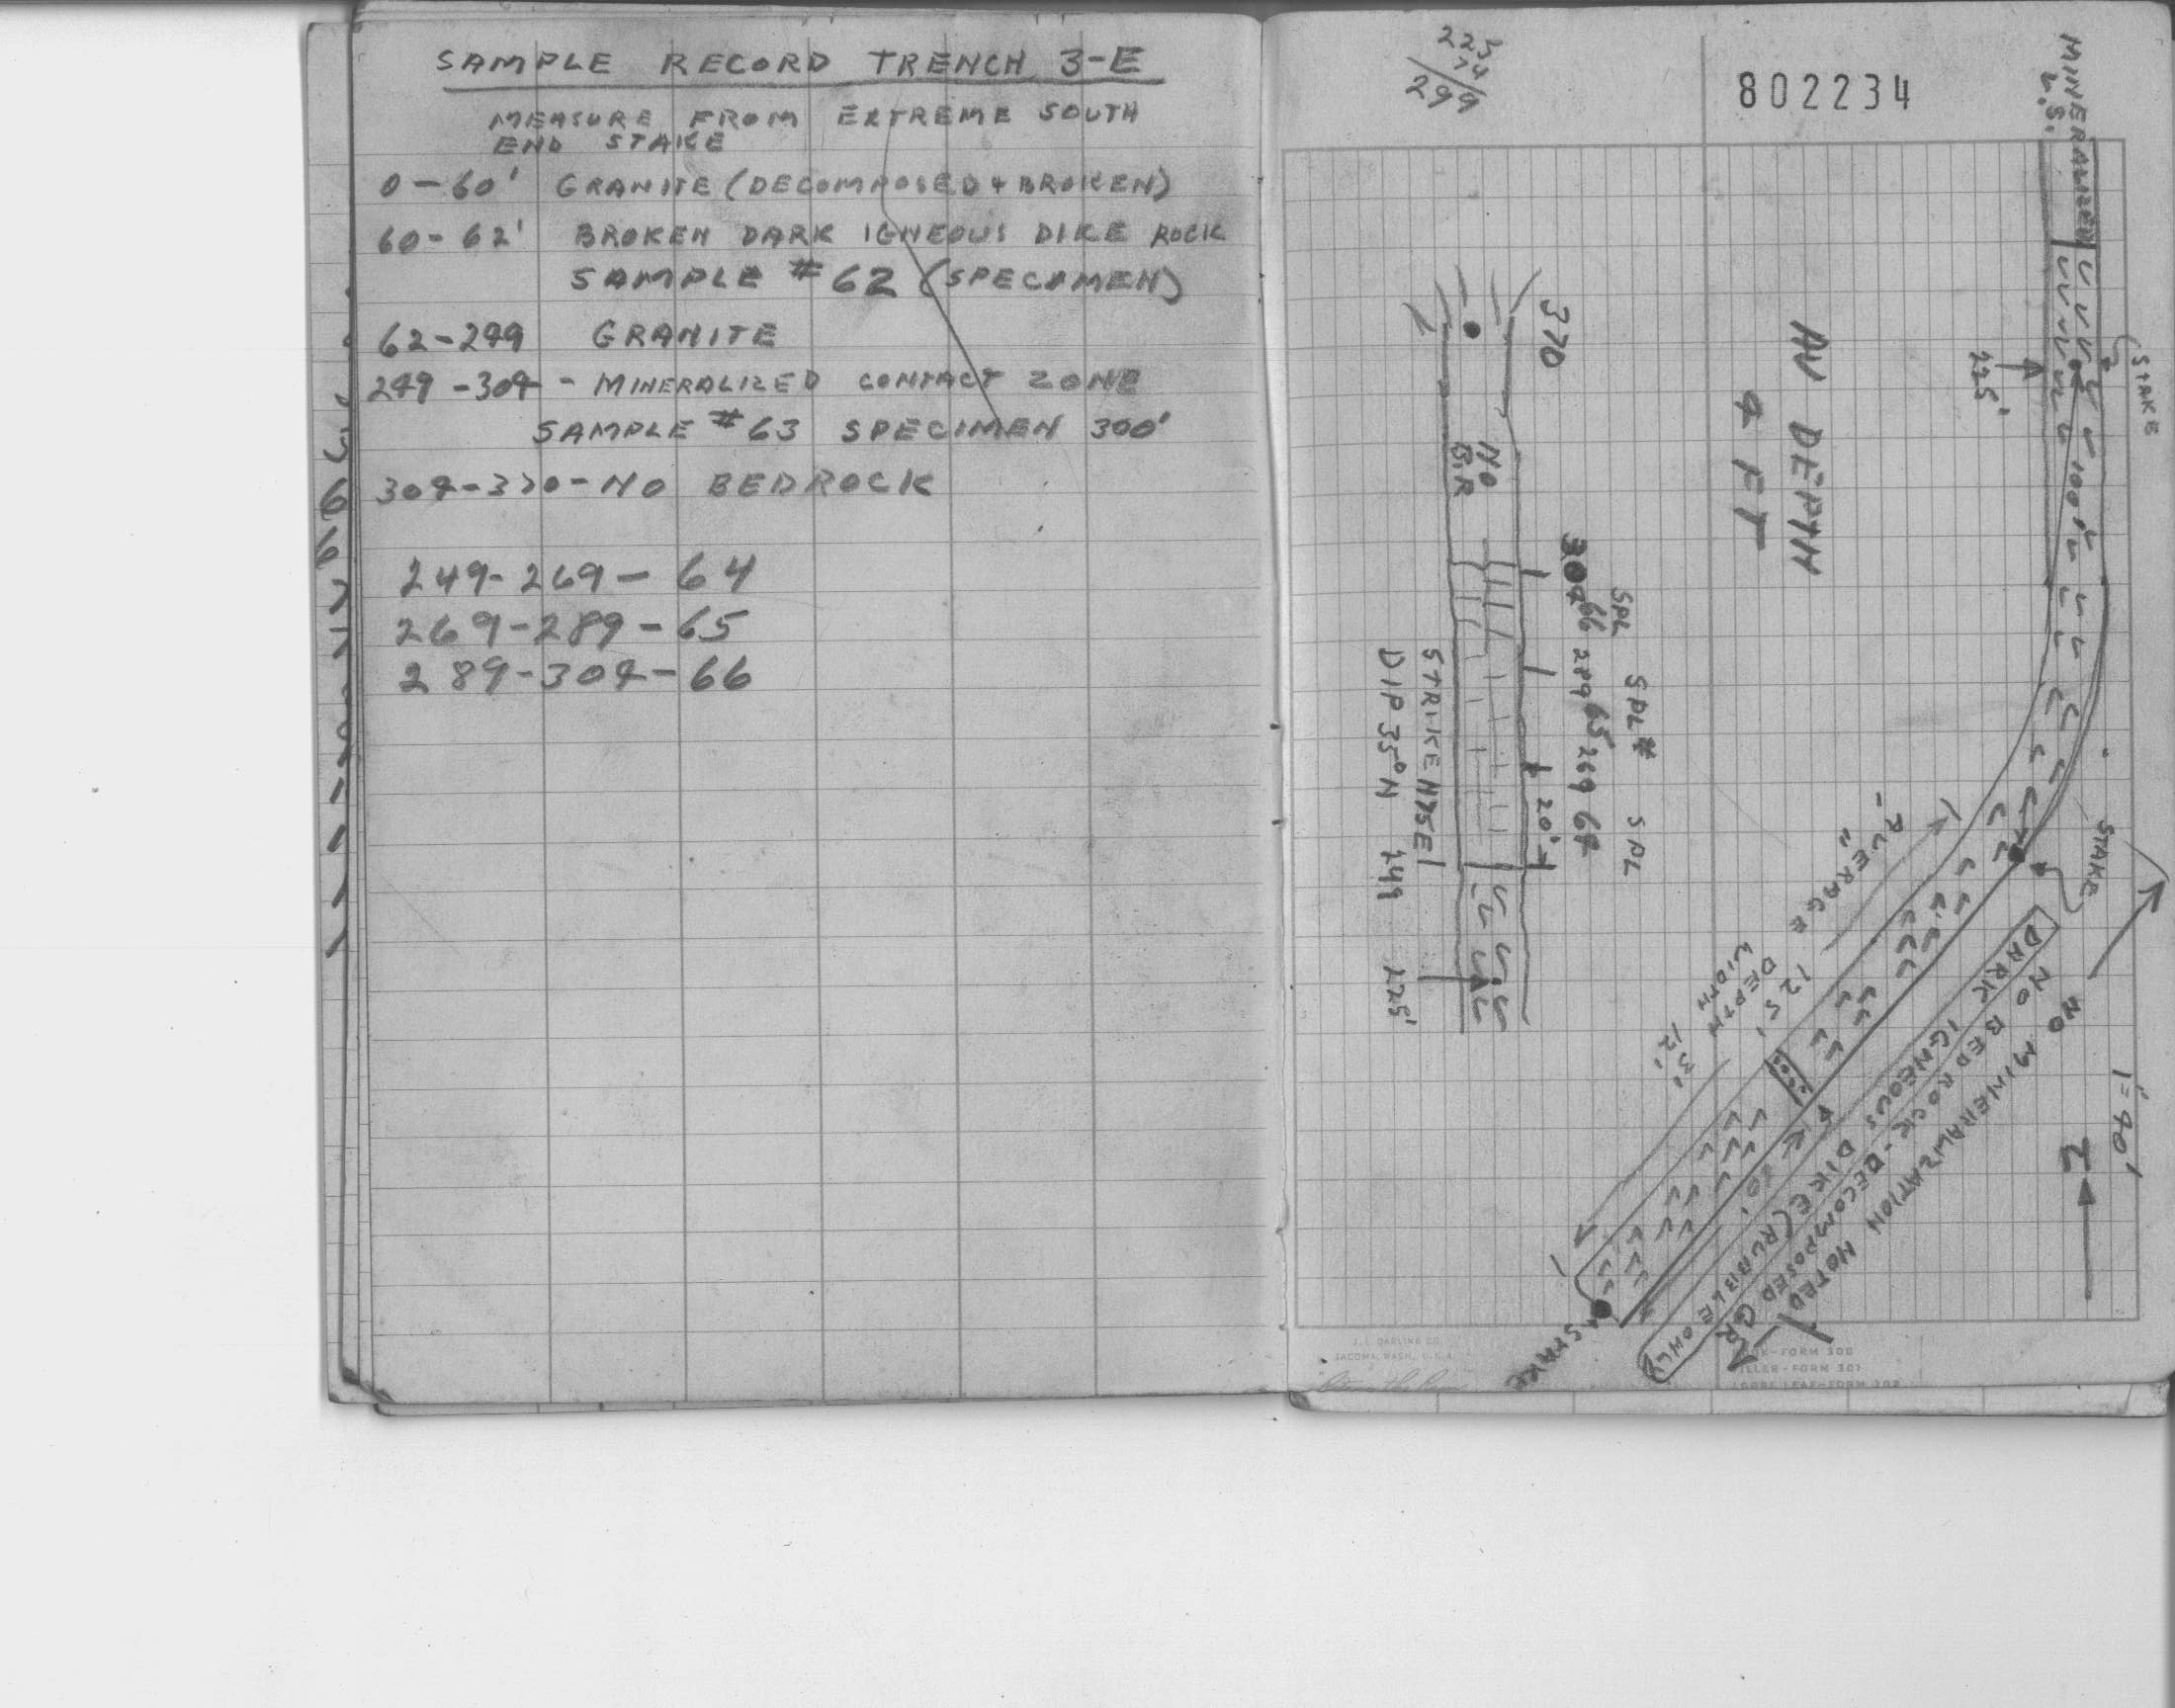 SAMPLE RECORD TRENCH 3-E
MEASURE FROM EXTREME SOUTH
END STAKE
0-60' GRANITE (DECOMPOSED + BROKEN)
60-62' BROKEN DARK IGNEOUS DIKE ROCK
SAMPLE #62 (SPECIMEN)
62-249 GRANITE
249-304 - MINERALIZED CONTACT ZONE
SAMPLE #63 SPECIMEN 300'
304-370-NO BEDROCK
249-269-64
269-289-65
289-304-66
225
74
299
802234
MINERALIZED
L.S.
STAKE
225'
AV DEPTH
4 FT
100'
370
NO
B.R
304
SPL
66
289
SPL#
65
269
SPL
64
20'
STRIKE N75E
DIP 35° N
249
225'
STAKE
AVERAGE
125'
DEPTH 3'
WIDTH 12'
60'
DARK IGNEOUS DIKE (RUBBLE ONLY
NO BEDROCK-DECOMPOSED GR
NO MINERALIZATION NOTED
1"=40'
N
STAKE
J. L. DARLING CO.
TACOMA, WASH., U.S.A.
FORM 300
FILLER-FORM 301
LOOSE LEAF-FORM 302